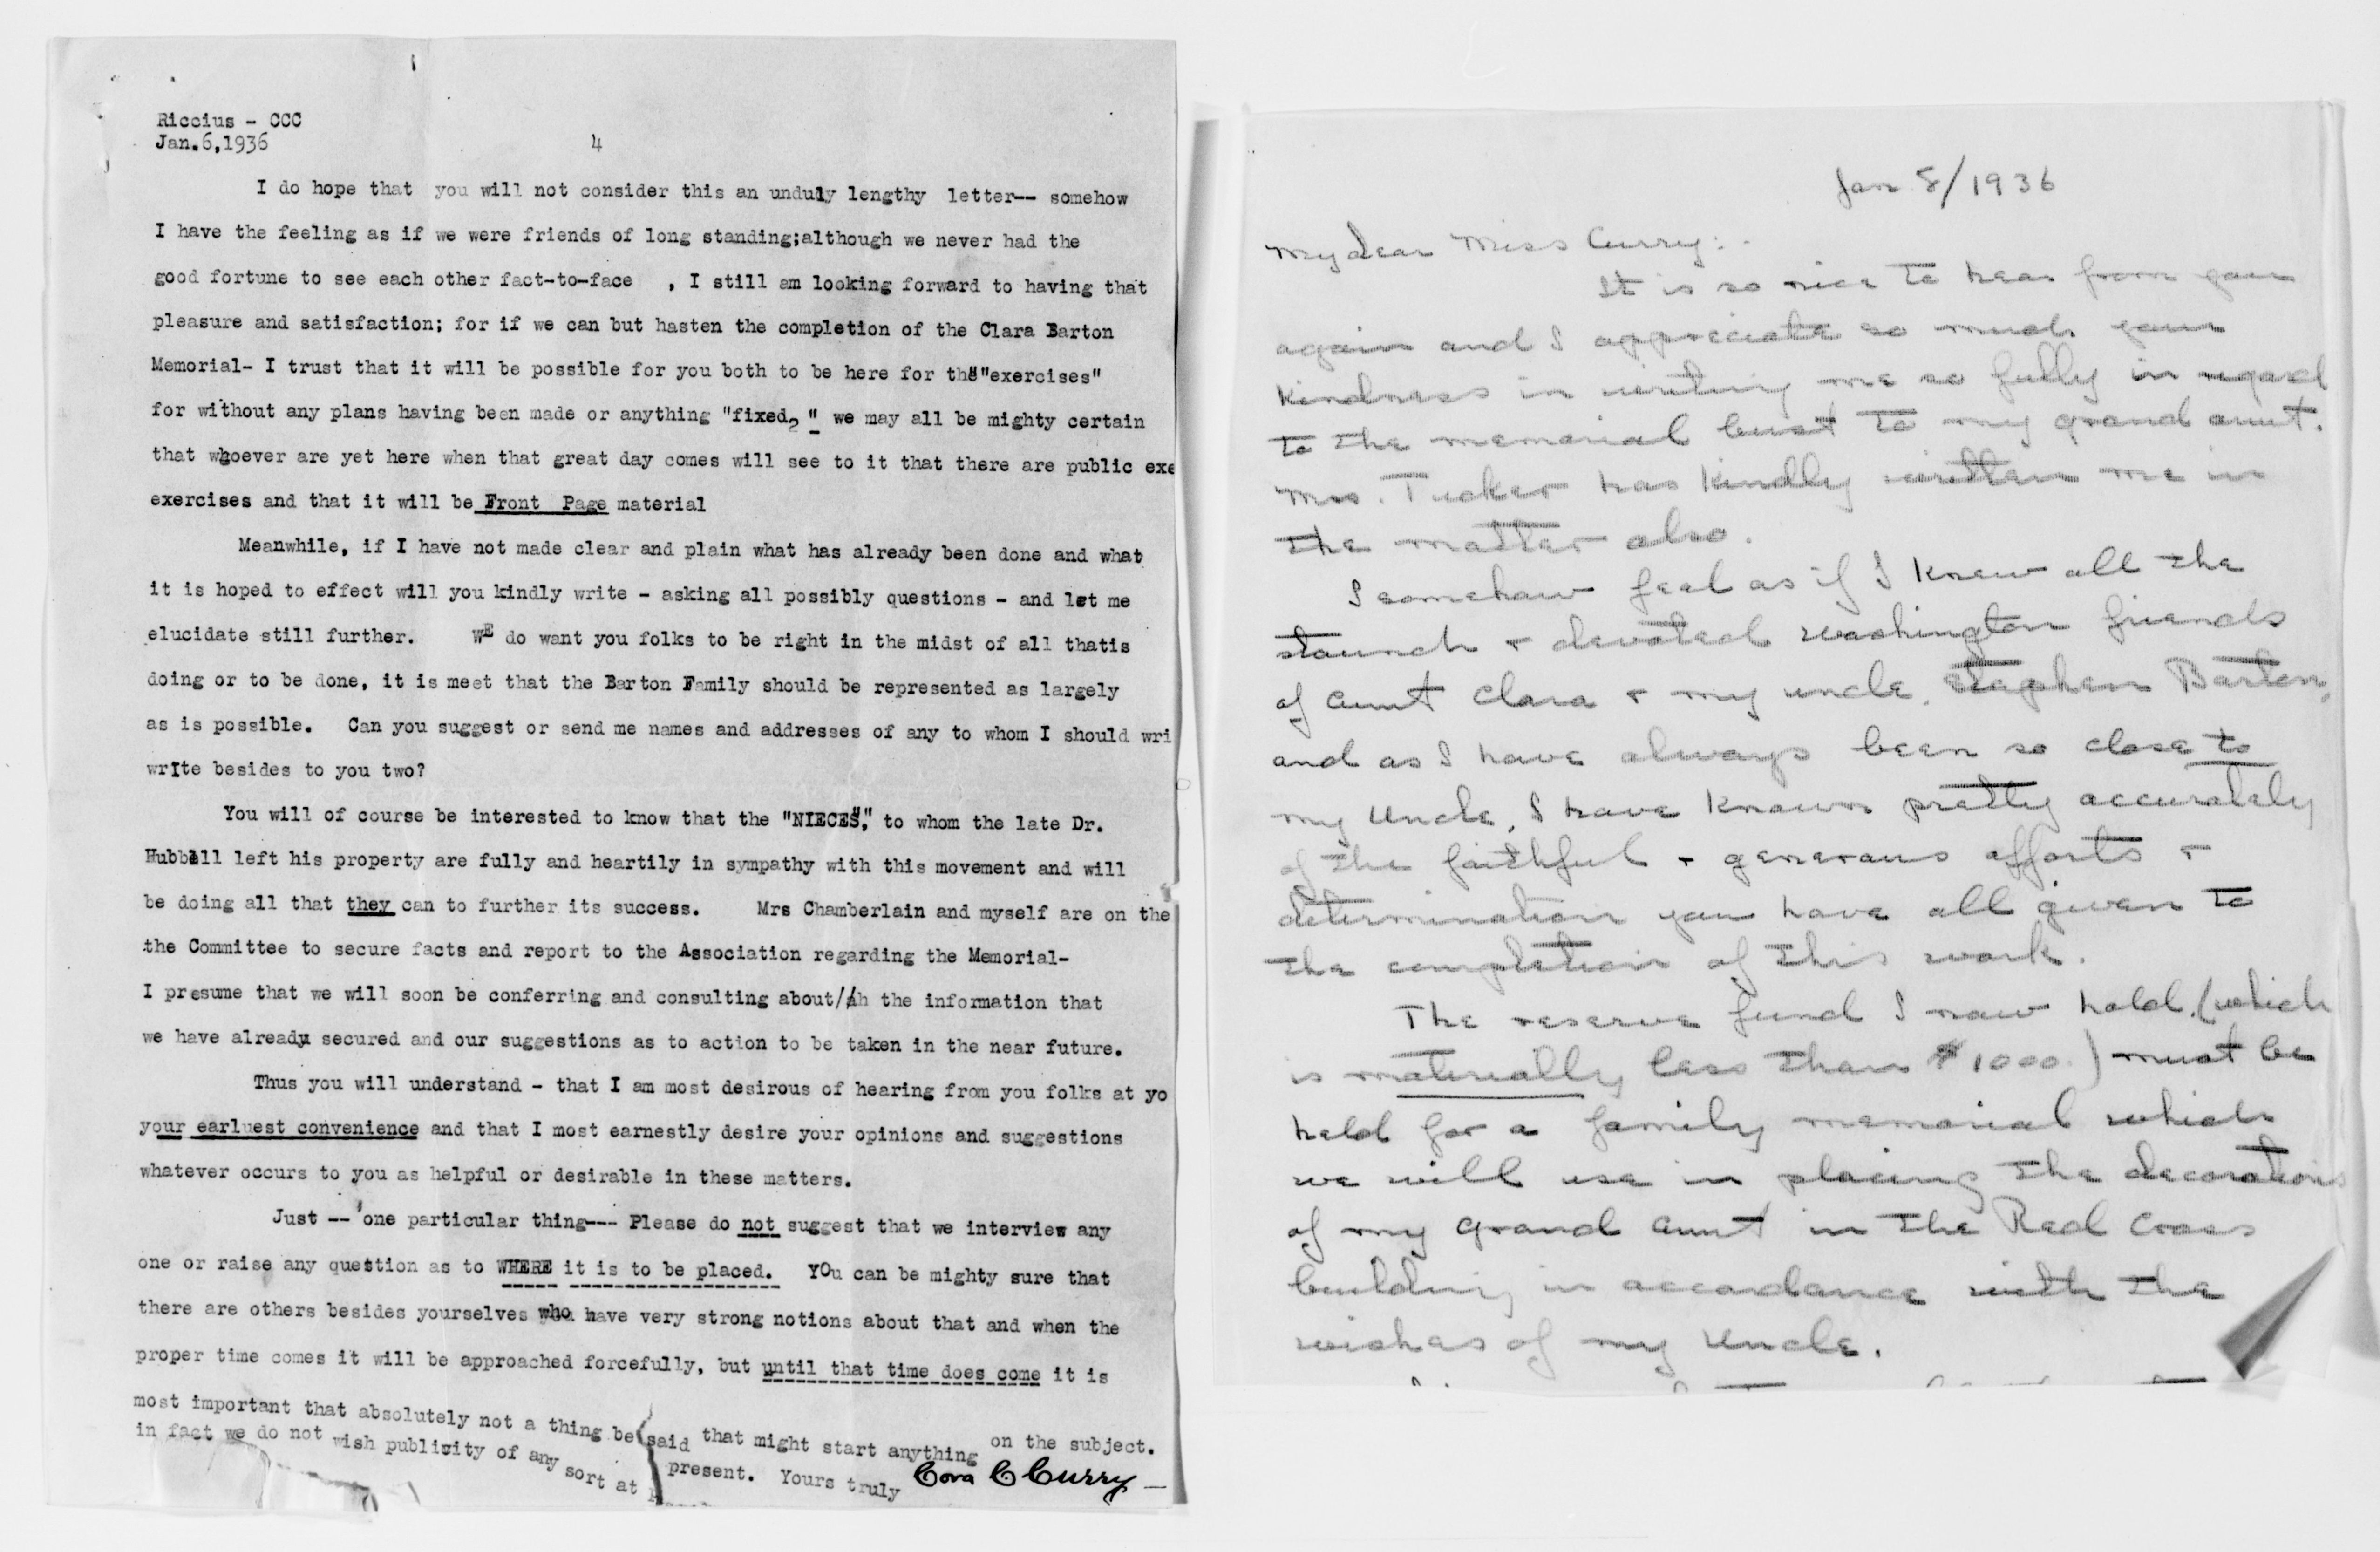 Riccius - CCC
Jan.6,1936
4
I do hope that you will not consider this an unduly lengthy letter-- somehow
I have the feeling as if we were friends of long standing;although we never had the
good fortune to see each other fact-to-face , I still am looking forward to having that
pleasure and satisfaction; for if we can but hasten the completion of the Clara Barton
Memorial- I trust that it will be possible for you both to be here for the "exercises"
for without any plans having been made or anything "fixed," we may all be mighty certain
that whoever are yet here when that great day comes will see to it that there are public exe
exercises and that it will be Front Page material
Meanwhile, if I have not made clear and plain what has already been done and what
it is hoped to effect will you kindly write - asking all possibly questions - and let me
elucidate still further. WE do want you folks to be right in the midst of all thatis
doing or to be done, it is meet that the Barton Family should be represented as largely
as is possible. Can you suggest or send me names and addresses of any to whom I should wri
wrIte besides to you two?
You will of course be interested to know that the "NIECES", to whom the late Dr.
Hubbell left his property are fully and heartily in sympathy with this movement and will
be doing all that they can to further its success. Mrs Chamberlain and myself are on the
the Committee to secure facts and report to the Association regarding the Memorial-
I presume that we will soon be conferring and consulting about/ the information that
we have already secured and our suggestions as to action to be taken in the near future.
Thus you will understand - that I am most desirous of hearing from you folks at yo
your earluest convenience and that I most earnestly desire your opinions and suggestions
whatever occurs to you as helpful or desirable in these matters.
Just -- 'one particular thing--- Please do not suggest that we interview any
one or raise any question as to WHERE it is to be placed. YOu can be mighty sure that
there are others besides yourselves who have very strong notions about that and when the
proper time comes it will be approached forcefully, but until that time does come it is
most important that absolutely not a thing be said that might start anything on the subject.
in fact we do not wish publicity of any sort at present. Yours truly Cora C Curry
Jan 8/1936
My dear Miss Curry:-
It is so nice to hear from you
again and I appreciate so much your
kindness in writing me so fully in regard
to the memorial bust to my grand aunt.
Mrs. Tucker has kindly written me in
the matter also.
I somehow feel as if I knew all the
staunch + devoted Washington friends
of Aunt Clara + my uncle, Stephen Barton,
and as I have always been so close to
my Uncle, I have known pretty accurately
of the faithful + generous efforts +
determination you have all given to
the completion of this work.
The reserve fund I now hold, (which
is materially less than $1000.) must be
held for a family memorial which
we will use in placing the decorations
of my grand aunt in the Red Cross
building in accordance with the
wishes of my Uncle.